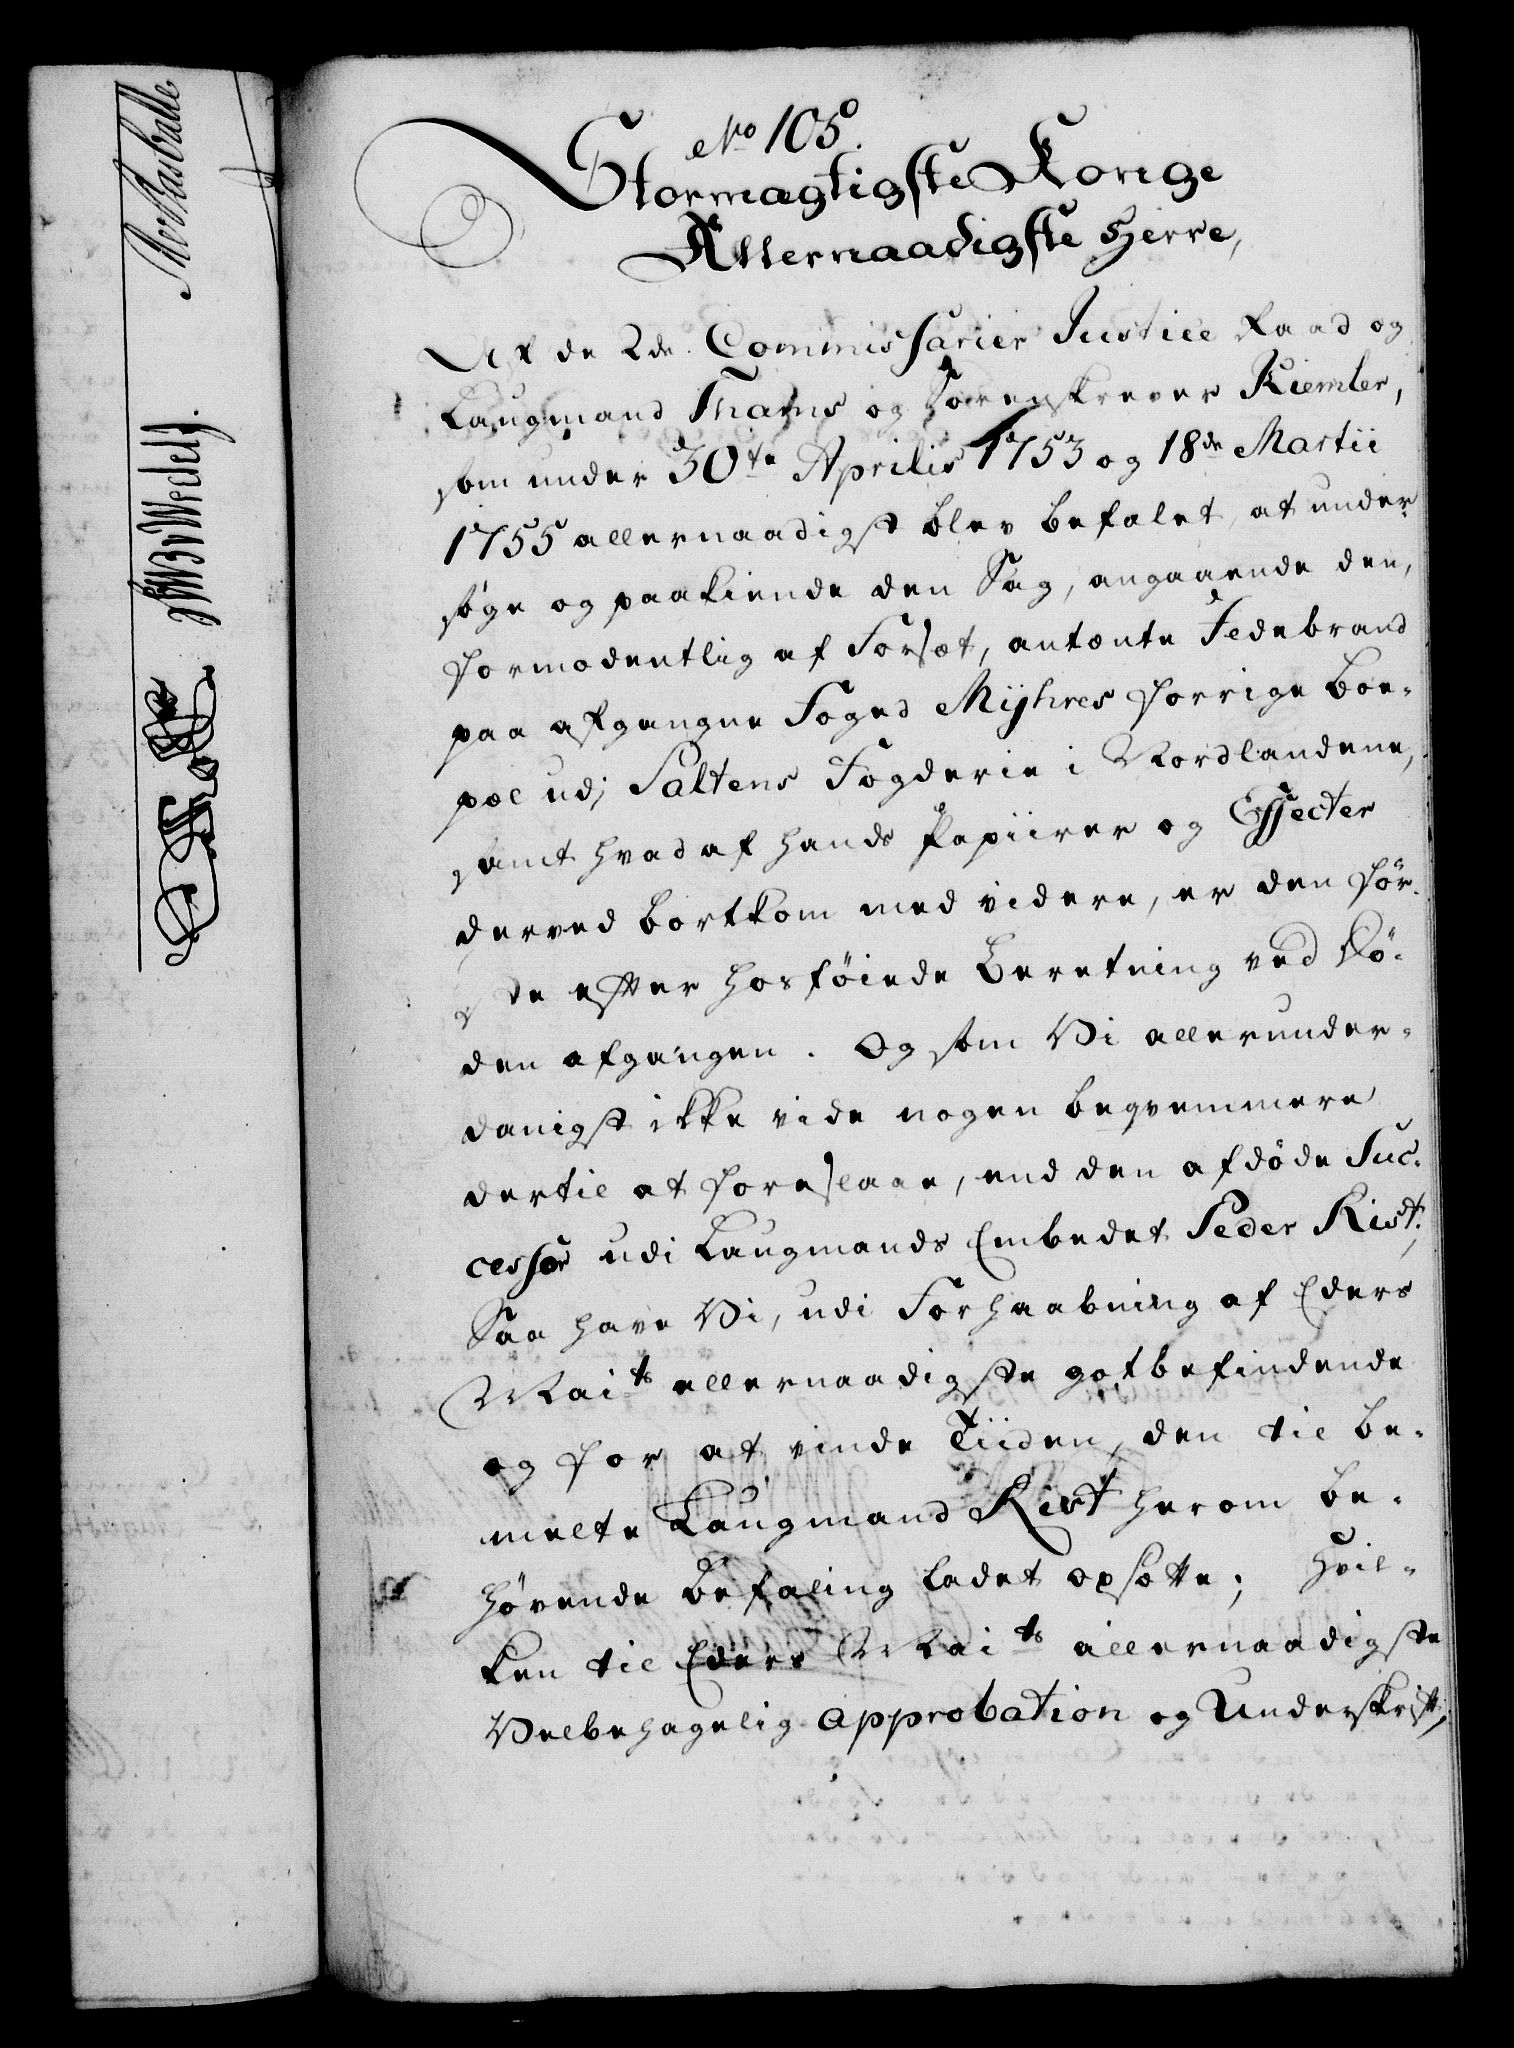 No 105.
Stormægtigste Konge
Allernaadigste Herre,
Af de 2de Commissarier Justice Raad og
Laugmand Thams og Sorenskrever Kiemler,
som under 30te Aprilis 1753 og 18de Martii
1755 allernaadigst blev befalet, at under
søge og paakiende den Sag, angaaende den,
formodentlig af Forsæt, antænte Ildebrand
paa afgangne Foged Mÿhres forrige Boe-
pæl udj Saltens Fogderie i Nordlandene,
samt hvad af hands Papiirer og Effecter
derved bortkom med videre, er den før-
ste efter hosføiede Beretning ved Dø-
den afgangen. Og som Vi allerunder-
danigst ikke vide nogen beqvemmere
dertil at foreslaae, end den afdøde Suc-
cessor udi Laugmands Embedet Peder Rist,
Saa have Vi, udi Forhaabning af Eders
Maits allernaadigste gotbefindende
og for at vinde Tiiden, den til be-
melte Laugmand Rist herom be-
hövende Befaling ladet opsætte; hvil-
ken til Eders Maits allernaadigste
Velbehagelig approbation og Underskrift,